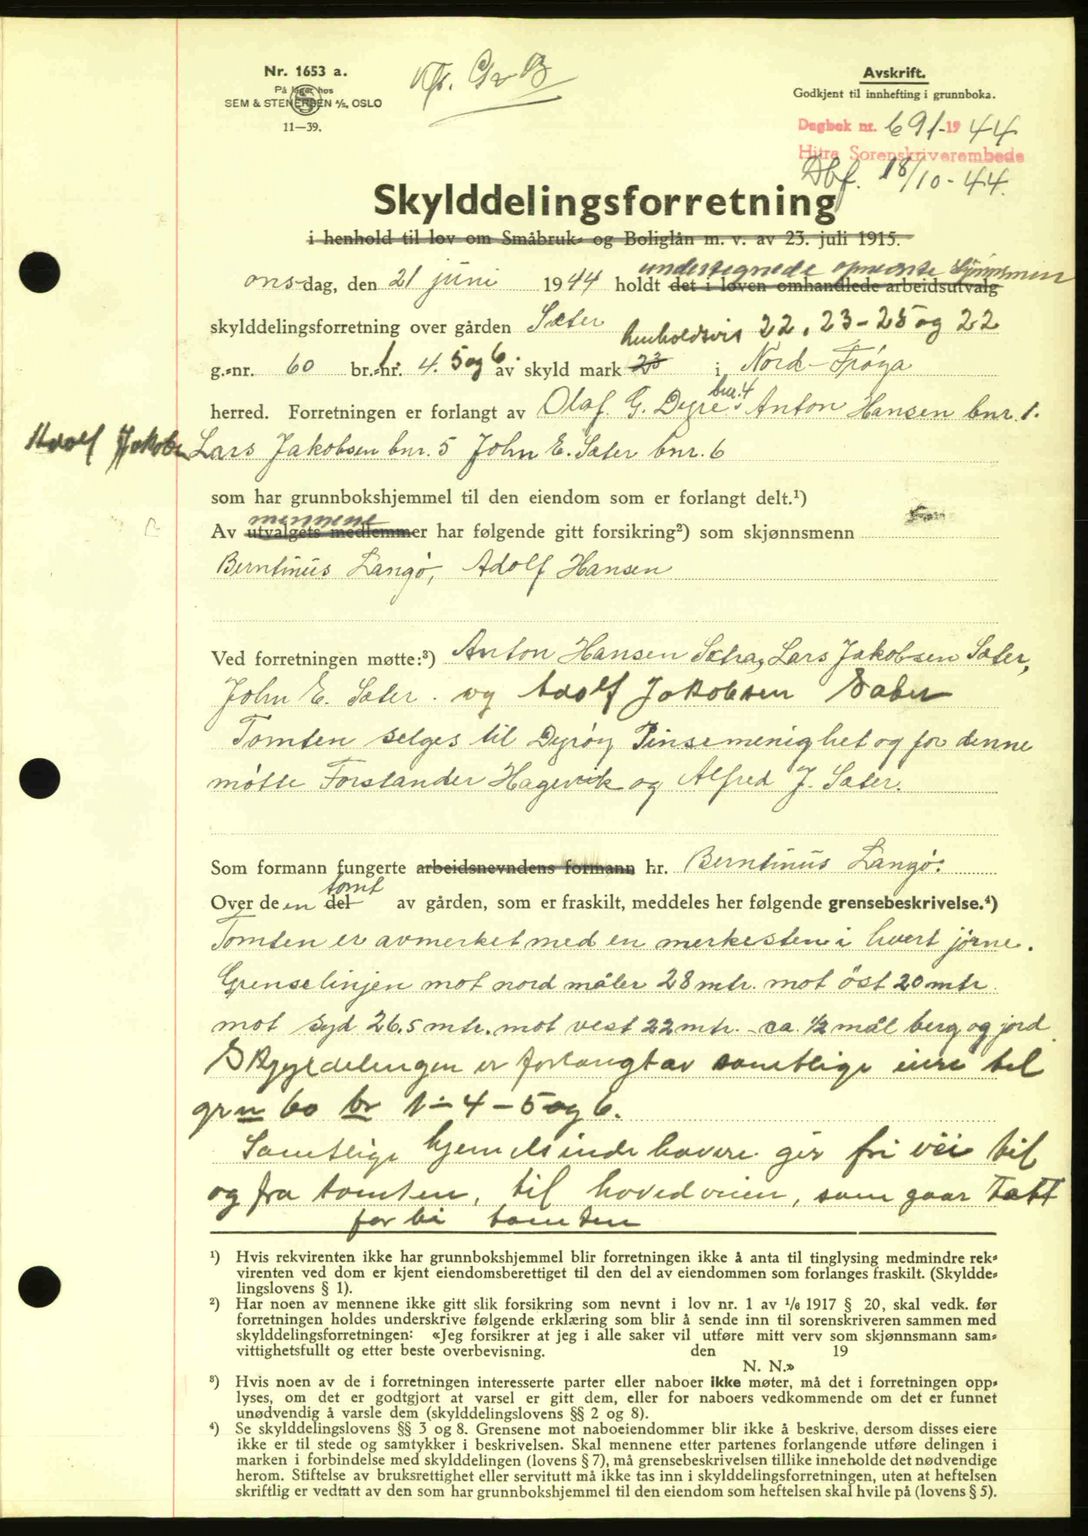 Nr. 1653 a.
På lager hos
SEM & STENERSEN A/S, OSLO
11—39.
Kfr. Gr B
Avskrift.
Godkjent til innhefting i grunnboka.
Dagbok nr. 691-1944
Hitra Sorenskriverembede
Dbf. 18/10-44.
Skylddelingsforretning
i henhold til lov om Småbruk- og Boliglån m. v. av 23. juli 1915.
undertegnede opnevnte
onsdag, den 21 juni 1944 holdt det i loven omhandlede arbeidsutvalg
skylddelingsforretning over gården Sæter henholdsvis 22, 23-25 og 22
g.-nr. 60 br.-nr. 1 4. 5 og 6 av skyld mark 23 i Nord-Frøya
herred. Forretningen er forlangt av Olaf G. Dyrø bnr. 4 Anton Hansen bnr. 1.
Adolf Jakobs Lars Jakobsen bnr. 5 John E. Sæter bnr. 6
som har grunnbokshjemmel til den eiendom som er forlangt delt.¹)
mennene
Av utvalgets medlemmer har følgende gitt forsikring²) som skjønnsmenn
Berntinus Langø, Adolf Hansen
Ved forretningen møtte:³) Anton Hansen Sætra, Lars Jakobsen Sæter,
John E. Sæter. og Adolf Jakobsen Sæter
Tomten selges til Dyrøy Pinsemenighet og for denne
møtte Forstander Hagevik og Alfred J. Sæter.
Som formann fungerte arbeidsnevndens formann hr. Berntinus Langø.
tomt
Over de en del av gården, som er fraskilt, meddeles her følgende grensebeskrivelse.⁴)
Tomten er avmerket med en merkesten i hvert jørne.
Grenselinjen mot nord måler 28 mtr. mot öst 20 mtr.
mot syd 26.5 mtr. mot vest 22 mtr. - ca. 1/2 mål berg og jord
Skyyldelingen er forlangt av samtlige eiere til
grn 60 br 1-4-5 og 6.
Samtlige hjemelsindehavere gir fri vei til
og fra tomten, til hovedveien, som gaar tætt
forbi tomten
¹) Hvis rekvirenten ikke har grunnbokshjemmel blir forretningen ikke å anta til tinglysing medmindre rek-
virenten ved dom er kjent eiendomsberettiget til den del av eiendommen som forlanges fraskilt. (Skyldde-
lingslovens § 1).
²) Har noen av mennene ikke gitt slik forsikring som nevnt i lov nr. 1 av 1/6 1917 § 20, skal vedk. før
forretningen holdes underskrive følgende erklæring som blir å sende inn til sorenskriveren sammen med
skylddelingsforretningen: «Jeg forsikrer at jeg i alle saker vil utføre mitt verv som skjønnsmann sam-
vittighetsfullt og etter beste overbevisning. den 19
N. N.»
³) Hvis noen av de i forretningen interesserte parter eller naboer ikke møter, må det i forretningen opp-
lyses, om det er godtgjort at varsel er gitt dem, eller for naboers vedkommende om det er funnet
unødvendig å varsle dem (skylddelingslovens §§ 2 og 8).
⁴) Se skylddelingslovens §§ 3 og 8. Grensene mot naboeiendommer blir ikke å beskrive, dersom disses eiere
ikke er til stede og samtykker i beskrivelsen. Skal mennene etter partenes forlangende utføre delingen i
marken i forbindelse med skylddelingen (lovens § 7), må grensebeskrivelsen tillike inneholde det nødvendige
herom. Stiftelse av bruksrettighet eller servitutt må ikke tas inn i skylddelingsforretningen, uten at heftelsen
skriftlig er vedtatt av den som har grunnbokshjemmel til den eiendom som heftelsen skal hvile på (lovens § 5).